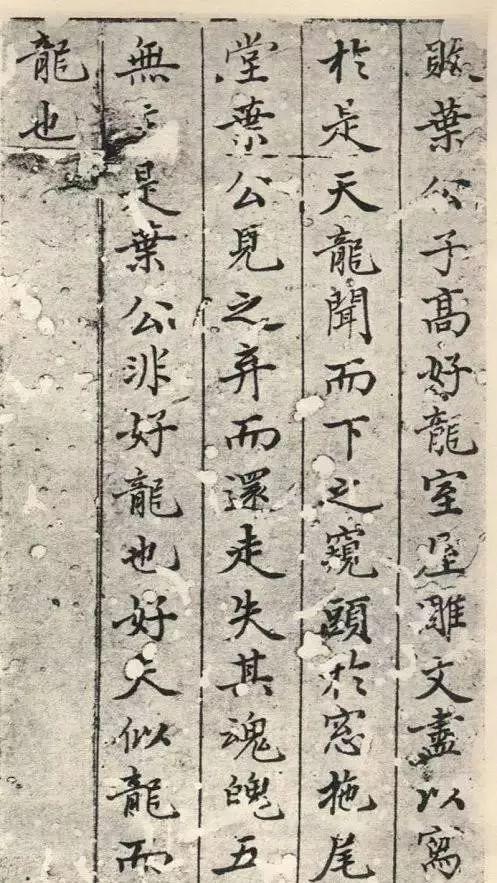 葉公子高好龍室屋雕文盡以寫
於是天龍聞而下之窺頭於窓拖尾
堂葉公見之弃而還走失其魂魄五
無是葉公非好龍也好夫似龍而
龍也